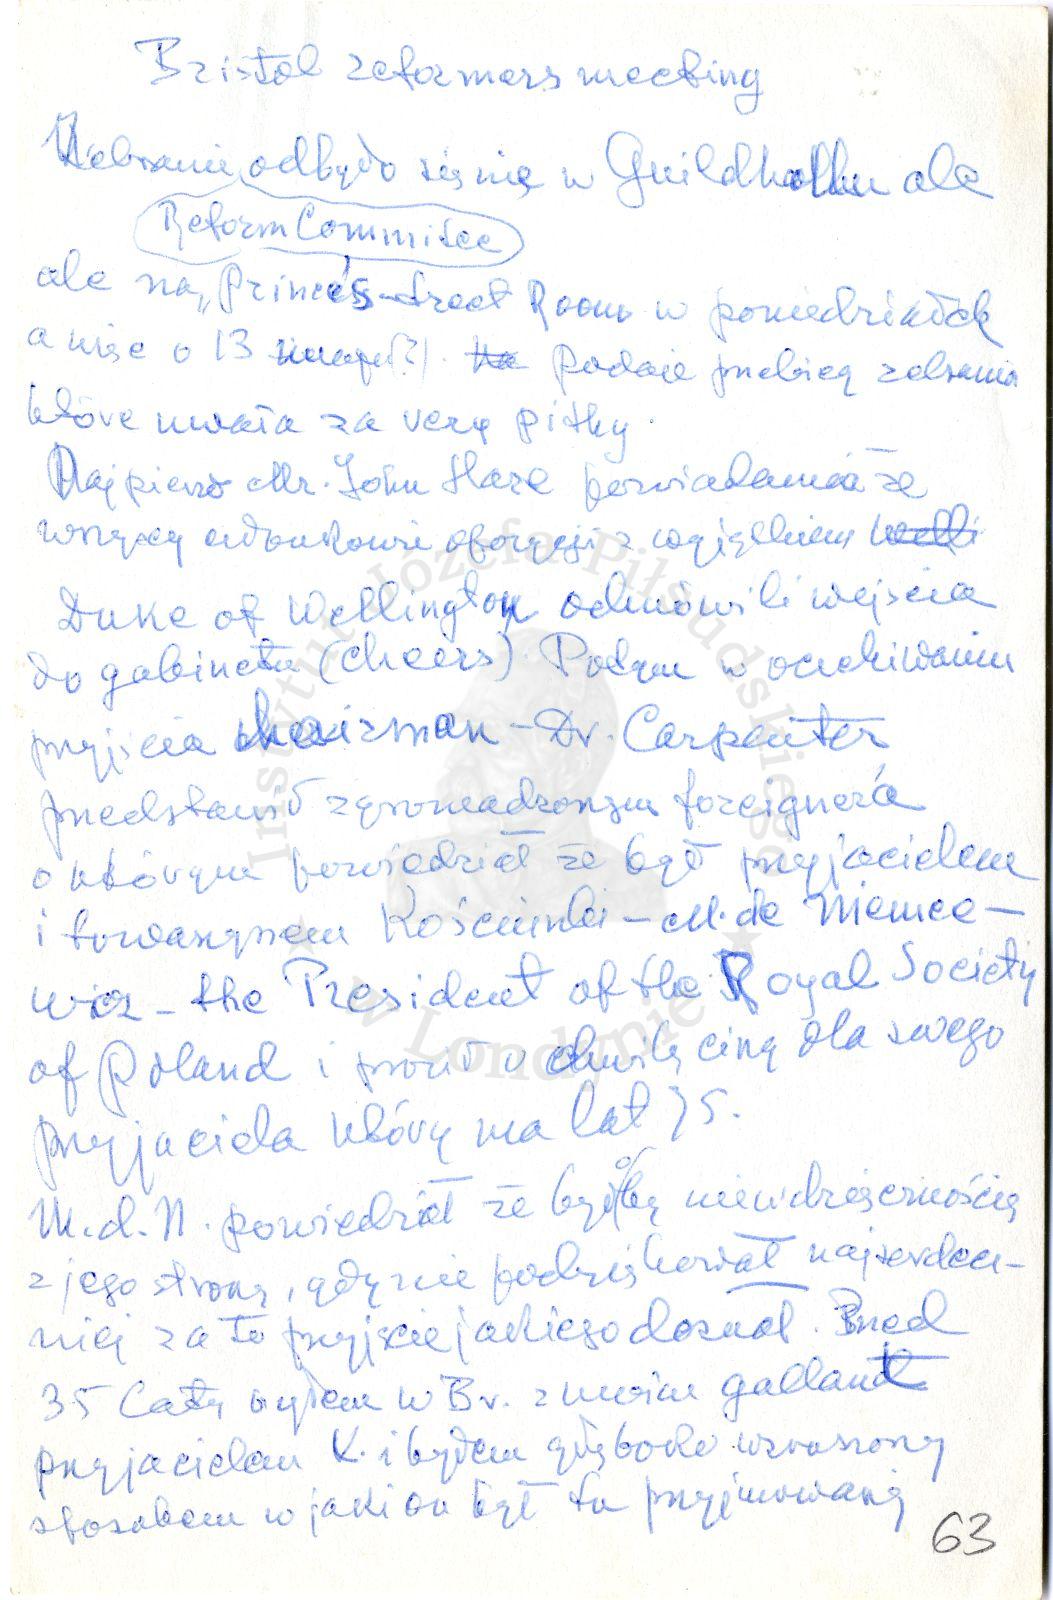 Bristol reformers meeting
Zebranie odbyło się nie w Guildhallu ale
Reform Committee
ale na „Princes Street Room w poniedziałek
a więc o 13 (?). Podaje przebieg zebrania
które uważa za very pithy.
Najpierw Mr. John Hare powiadamia że
wszyscy członkowie opozycji z wyjątkiem
Duke of Wellington odmówili wejścia
do gabinetu (cheers). Podczas w oczekiwaniu
przyjścia chairman - Dr. Carpenter
przedstawił zgromadzonym foreignera
o którym powiedział że był przyjacielem
i towarzyszem Kościuszki - M. de Niemce-
wicz - the President of the Royal Society
of Poland i prosił o chwilę ciszy dla swego
przyjaciela który ma lat 75.
M.d.N. powiedział że byłoby niewdzięcznością
z jego strony, gdyby nie podziękował najserdecz-
niej za to przyjęcie jakiego doznał. Przed
35 laty byłem w Br. z moim gallant
przyjacielem K. i byłem głęboko wzruszony
sposobem w jaki on był tu przyjmowany
63
Instytut Józefa Piłsudskiego
w Londynie